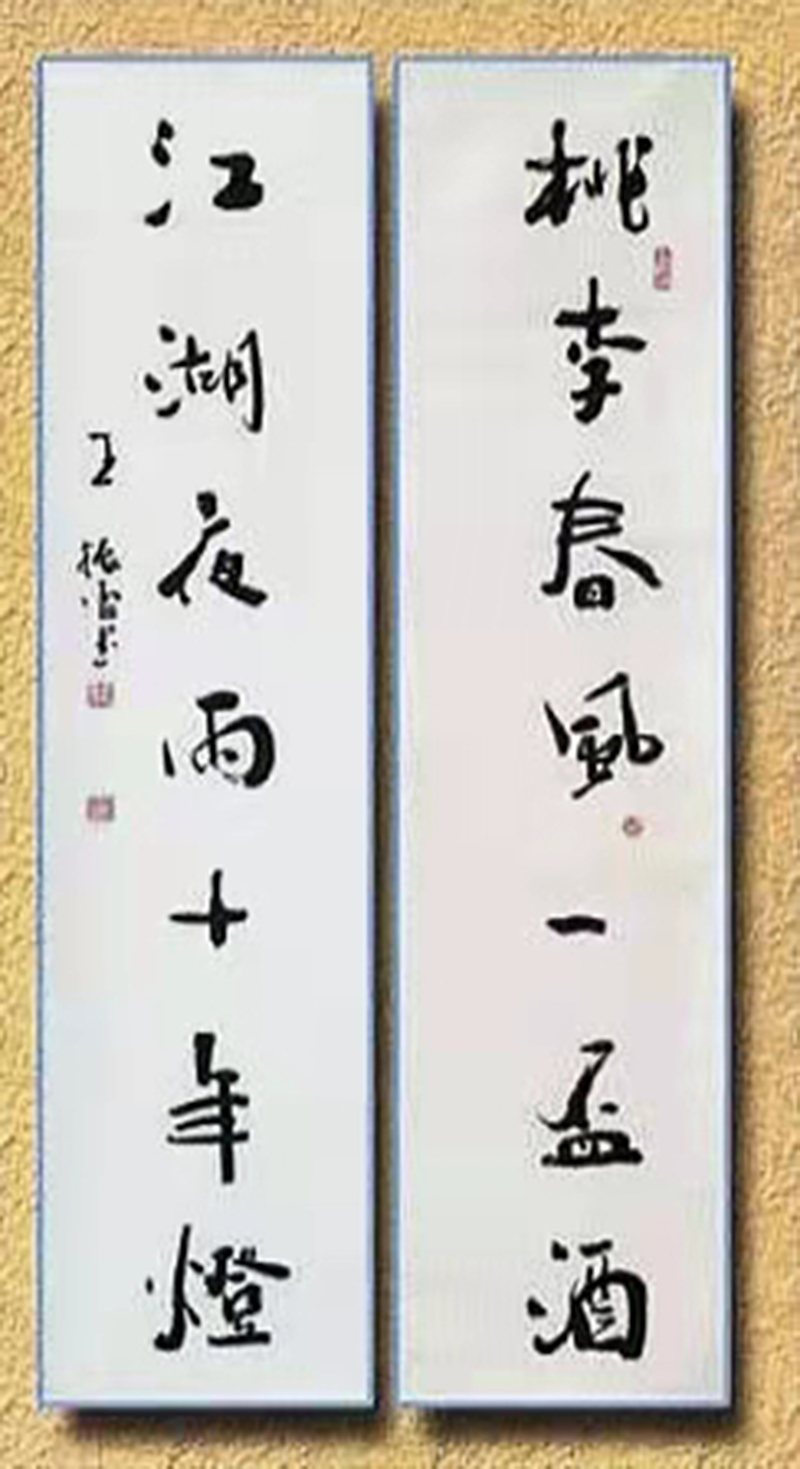 桃李春風一盃酒
江湖夜雨十年燈
王振